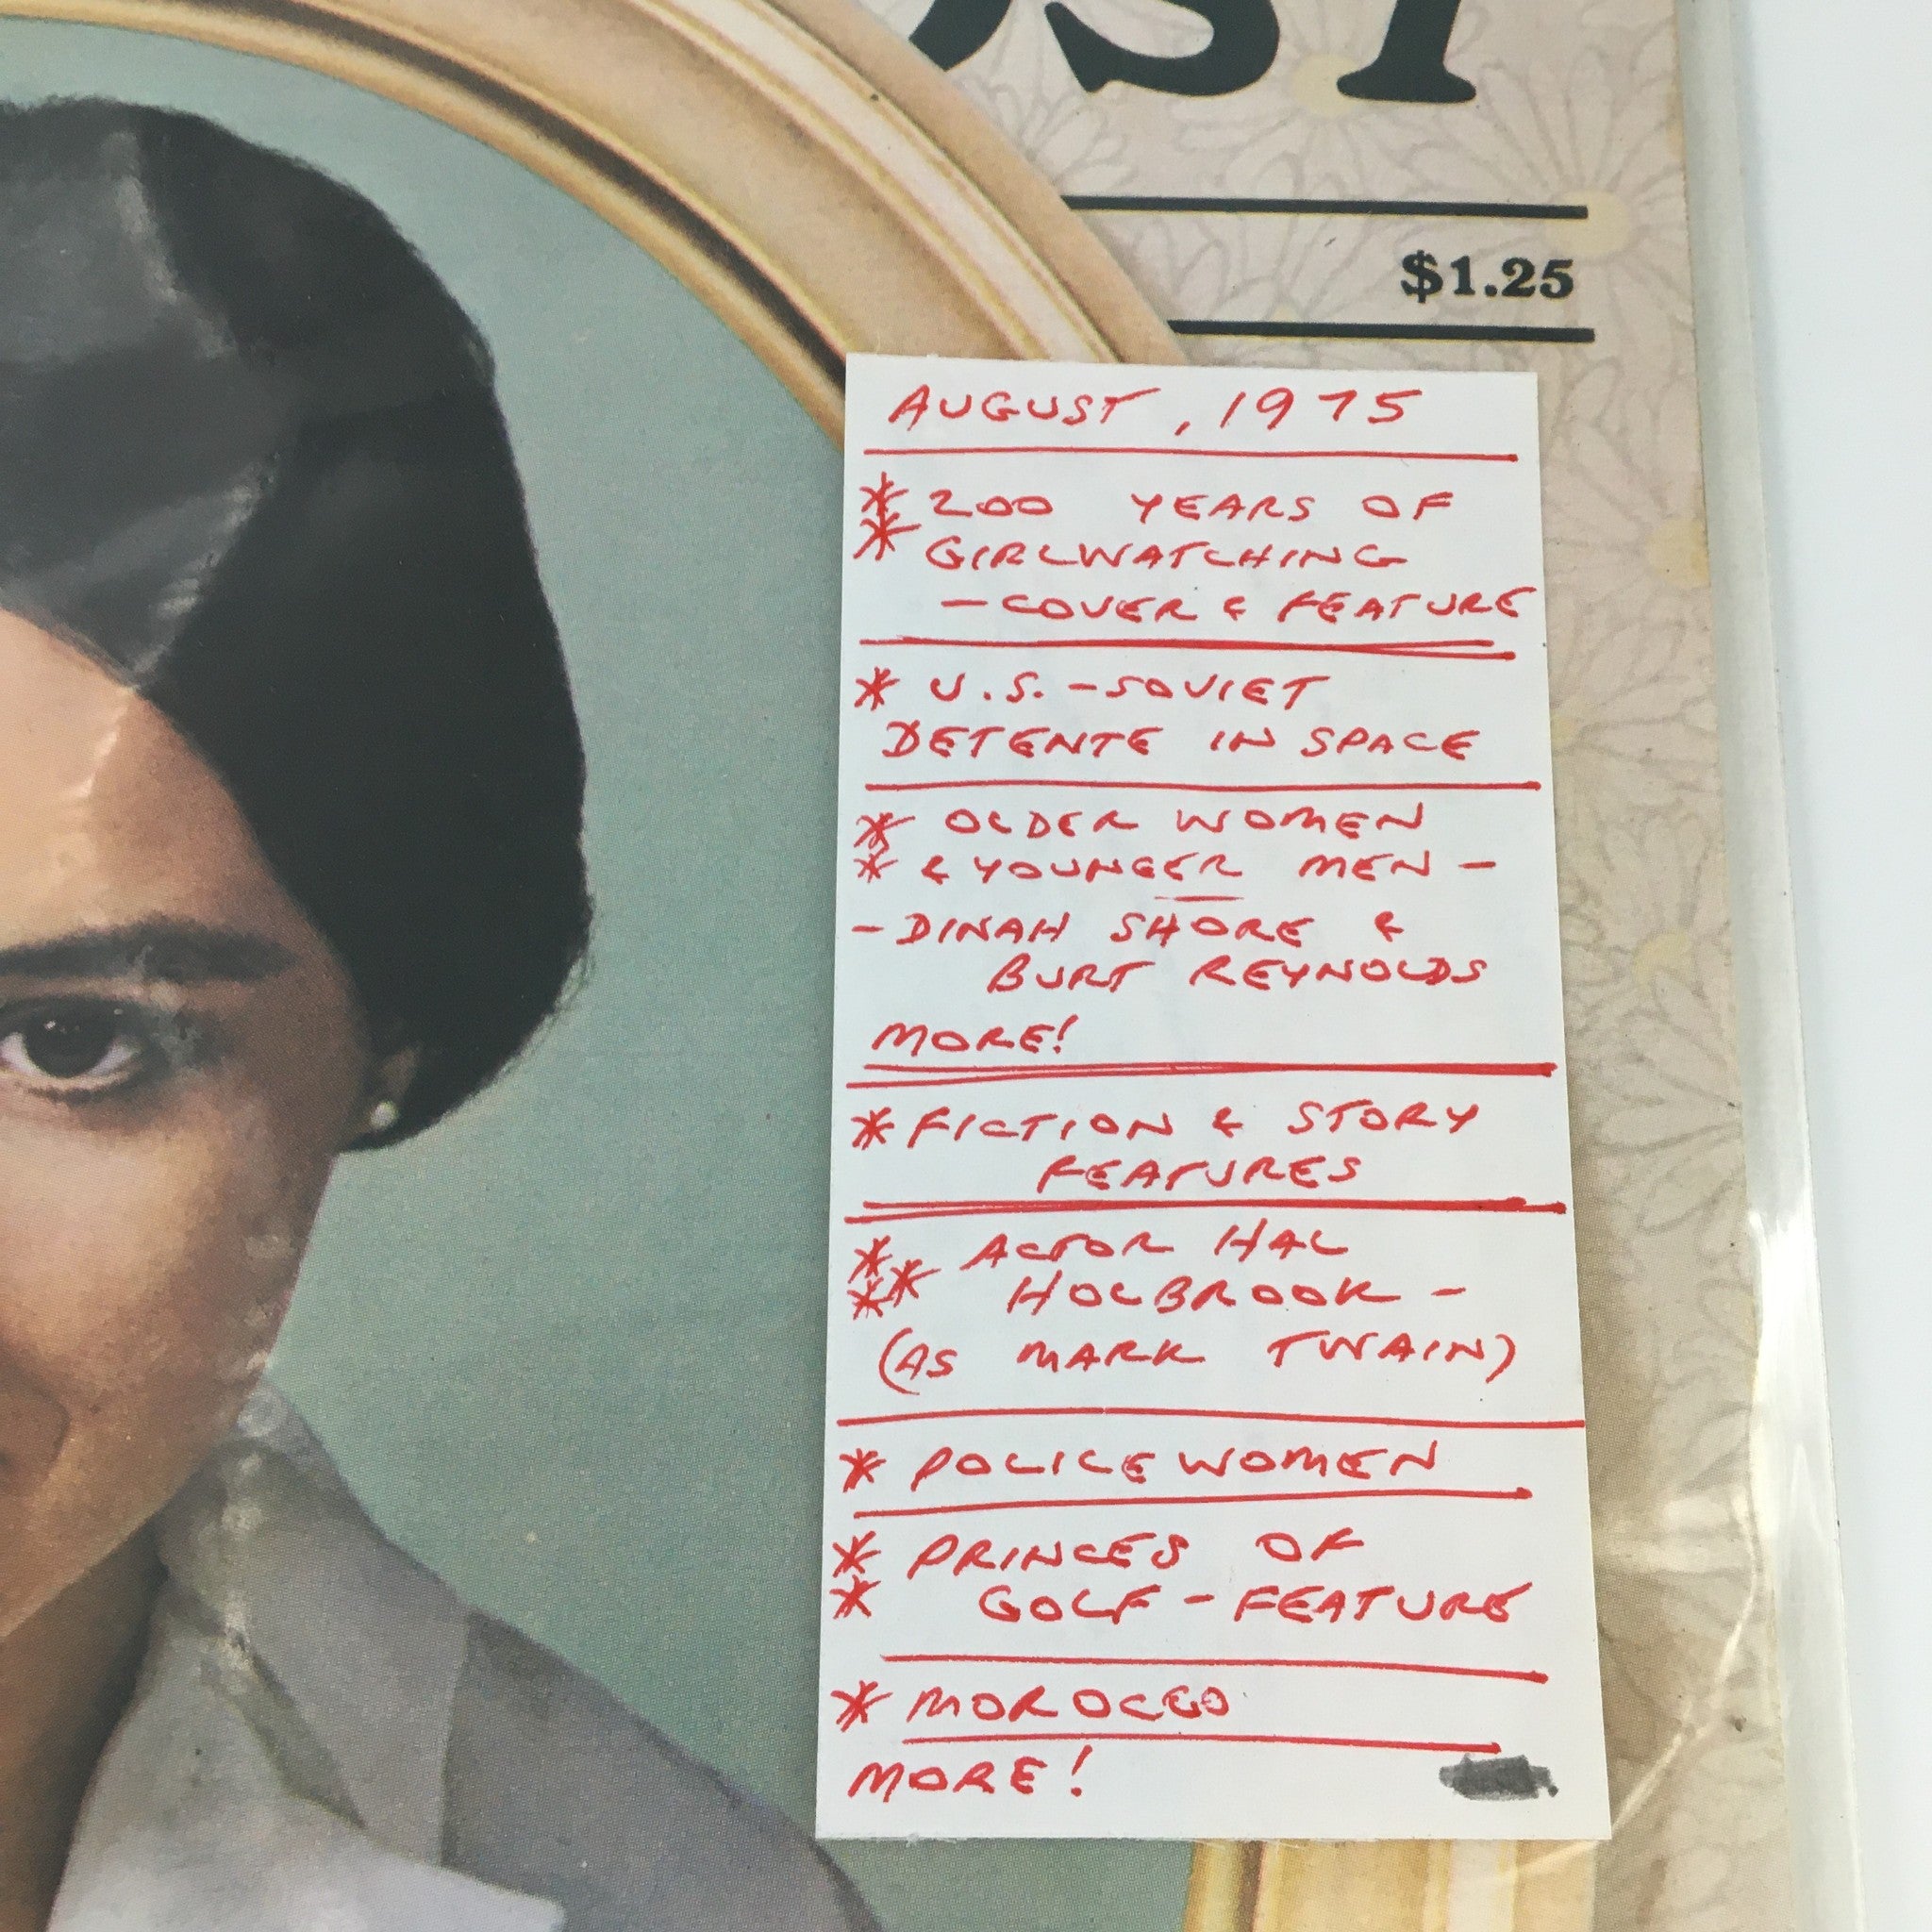 OST
$1.25
AUGUST, 1975
* 200 YEARS OF
* GIRLWATCHING
- COVER & FEATURE
* U.S. - SOVIET
DETENTE IN SPACE
* OLDER WOMEN
* & YOUNGER MEN -
- DINAH SHORE &
BURT REYNOLDS
MORE!
* FICTION & STORY
FEATURES
* ACTOR HAL
** HOLBROOK -
(AS MARK TWAIN)
* POLICEWOMEN
* PRINCES OF
* GOLF - FEATURE
* MOROCCO
MORE!